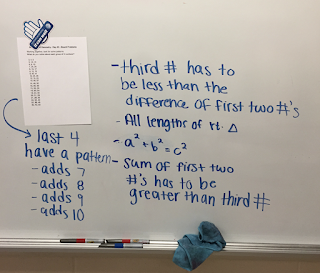 last 4
have a pattern
- adds 7
- adds 8
- adds 9
- adds 10
- third # has to
be less than the
difference of first two #'s
- All lengths of rt. Δ
- a² + b² = c²
- sum of first two
#'s has to be
greater than third #